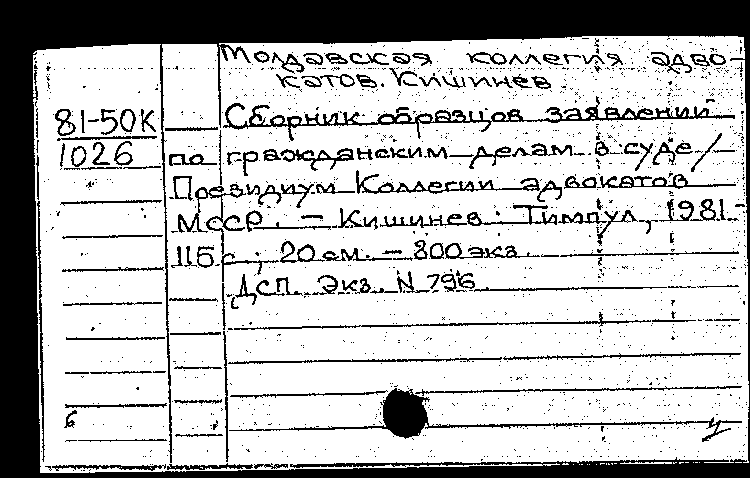 Молдавская коллегия адво-
катов. Кишинев.
81-50К Сборник образцов заявлений
1026 по гражданским делам в суде /
Президиум Коллегии адвокатов
МССР. – Кишинев: Тимпул, 1981. –
115 с.; 20 см. – 800 экз.
Дсп. Экз. N 796.
6